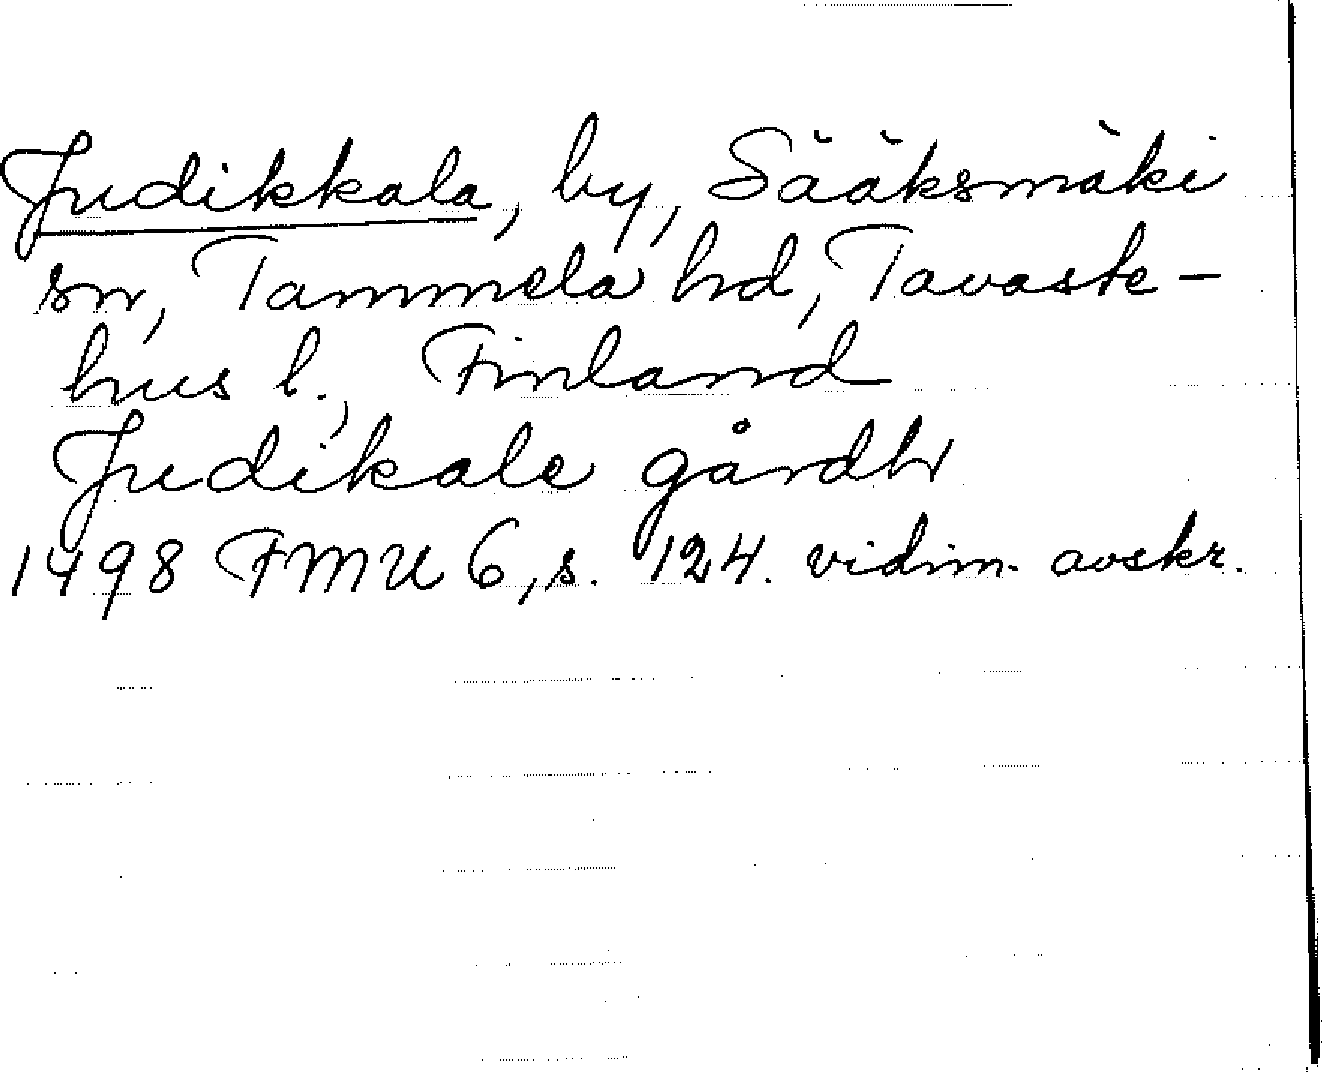 Judikkala, by, Sääksmäki
sn, Tammela hd, Tavaste-
hus l., Finland
Judikale gårdh
1498 FMU 6, s. 124. vidim. avskr.